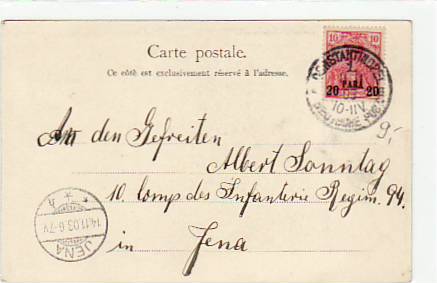 Carte postale.
Ce côté est exclusivement réservé à l'adresse.
10 10
CONSTANTINOPEL
1
PARA
20 20
10-11V
DEUTSCHE POST
9,-
An den Gefreiten
Albert Sonntag
10. Comp des Infanterie Regim. 94.
in Jena
14.11.03.6-7V
JENA